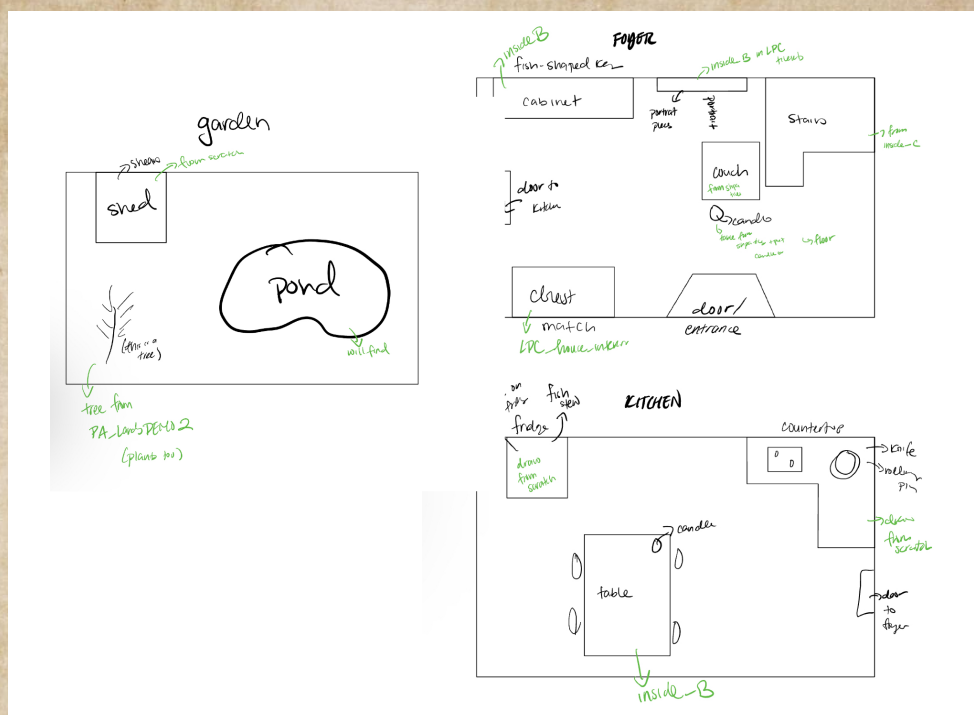 garden
shears
from scratch
shed
pond
(this is a
tree)
will find
tree from
PA_LandsDEMO2
(plants too)
FOYER
inside B
fish-shaped key
inside_B in LPC
cabinet
portrait
pieces
portrait
stairs
from
inside_C
couch
door to
kitchen
candle
floor
chest
match
LPC_house_interior
door/
entrance
KITCHEN
on
fridge
fish
stew
fridge
draw
from
scratch
countertop
knife
rolling
pin
draw
from
scratch
candle
table
door
to
foyer
inside_B